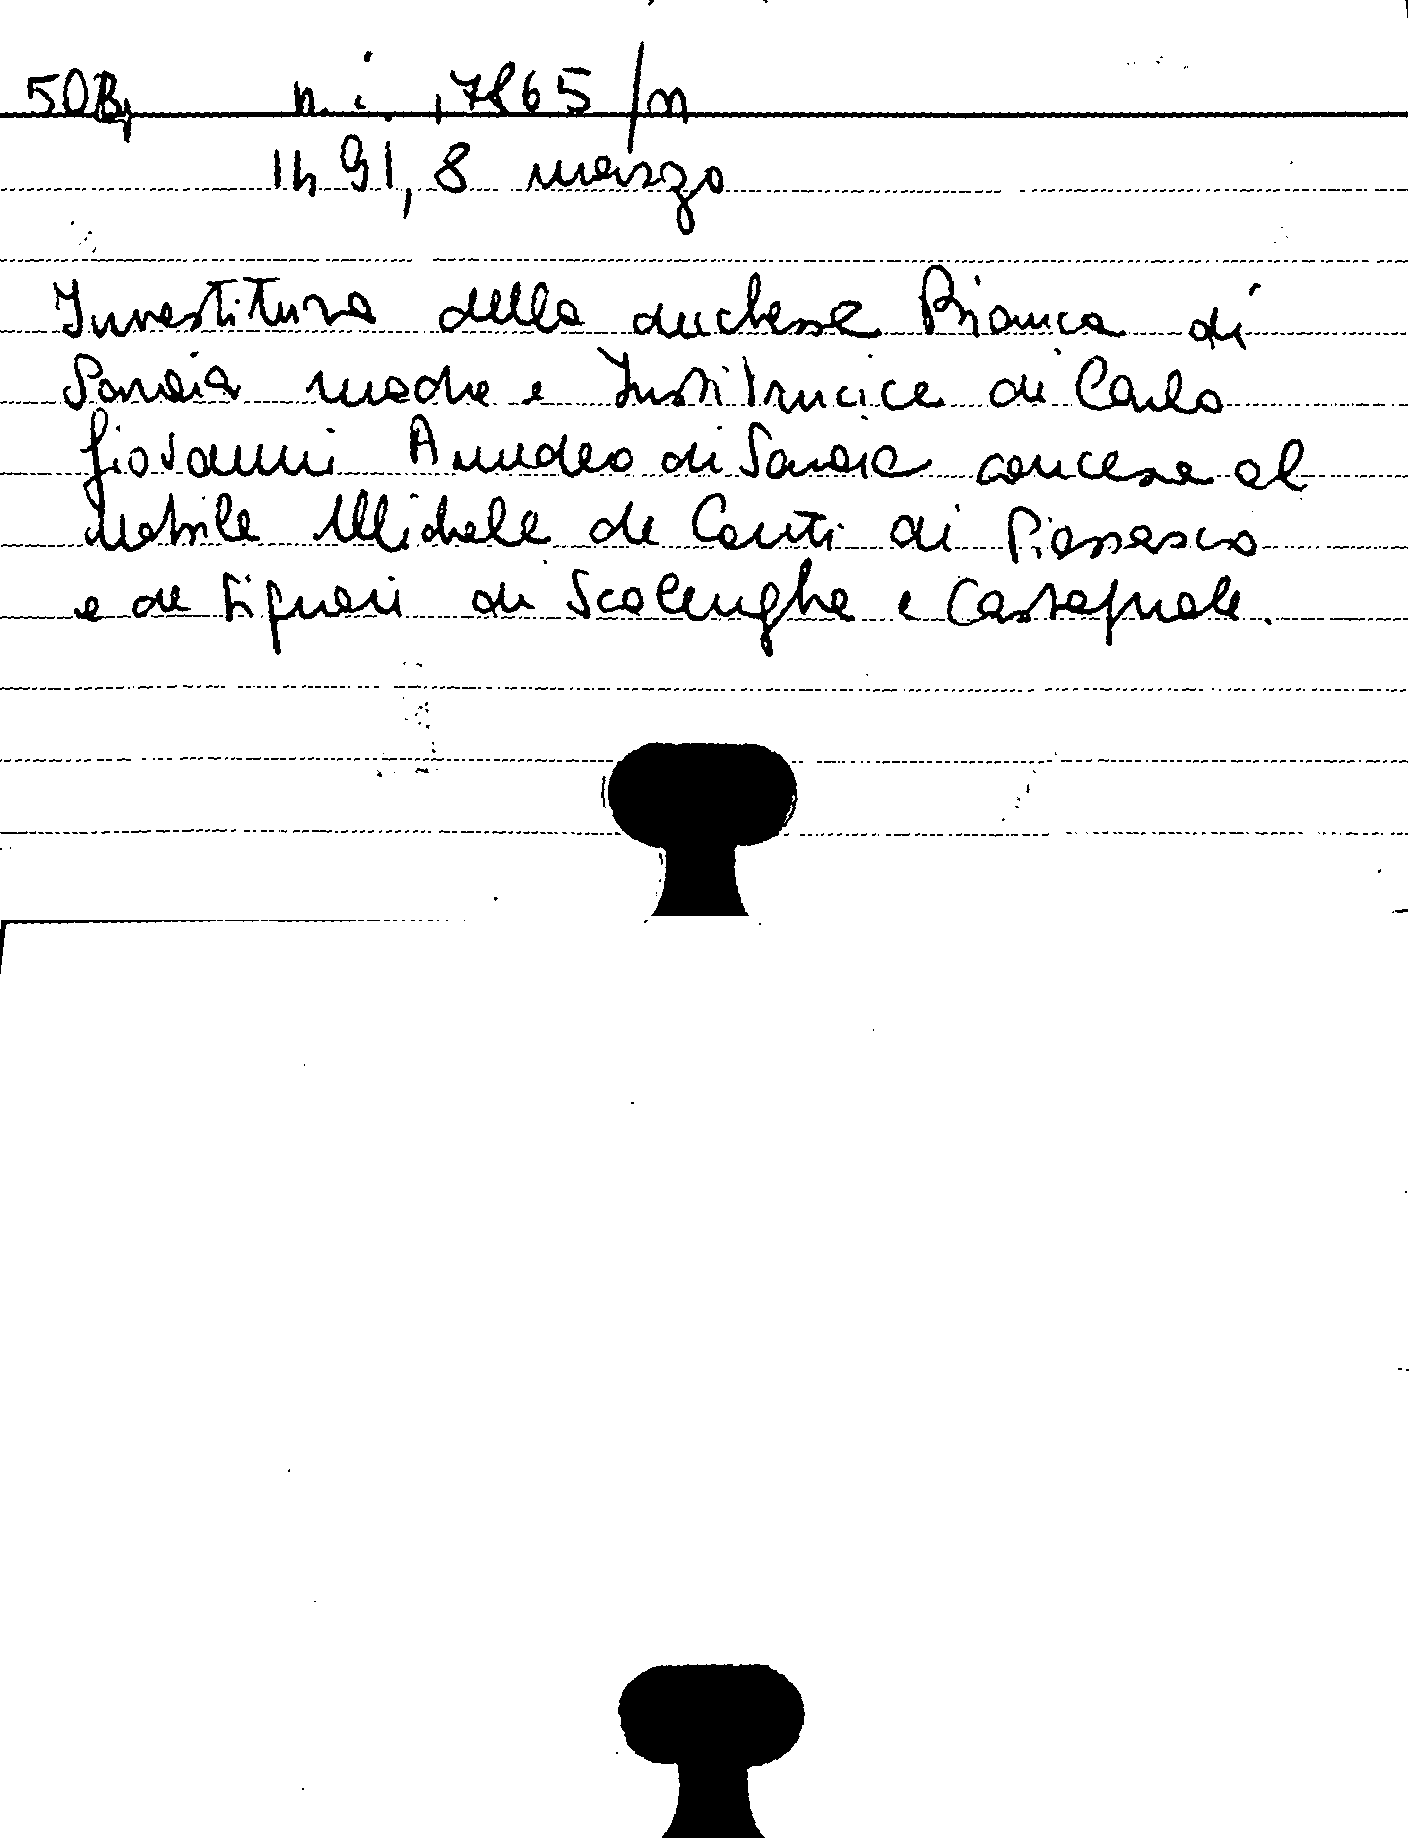 50B, n. i. 7865/n
1491, 8 marzo
Investitura della duchessa Bianca di
Savoia madre e Institrucice di Carlo
Giovanni Amedeo di Savoia concessa al
Nobile Michele de Conti di Piossasco
e de Signori di Scalenghe e Castagnole.